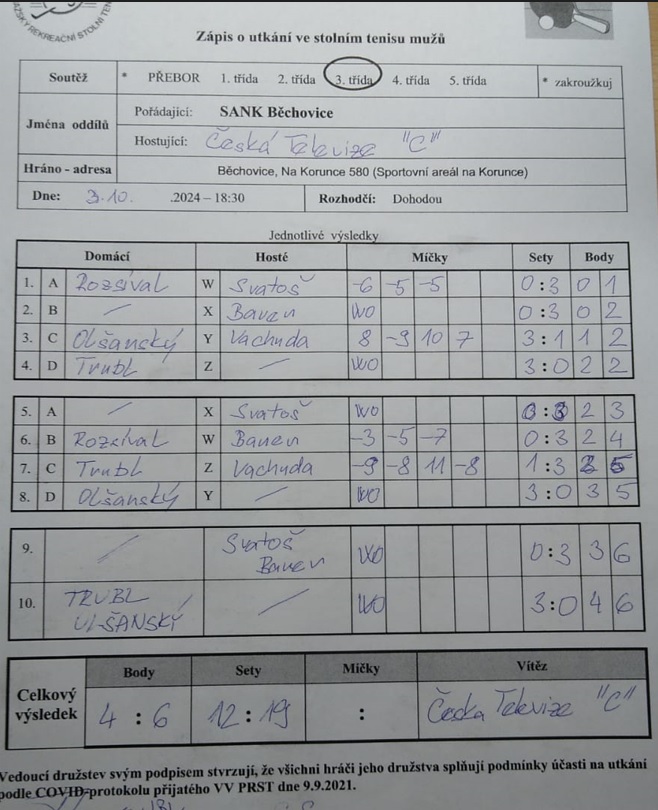 Zápis o utkání ve stolním tenisu mužů
Soutěž * PŘEBOR 1. třída 2. třída 3. třída 4. třída 5. třída * zakroužkuj
Jména oddílů
Pořádající: SANK Běchovice
Hostující: Česká Televize "C"
Hráno - adresa Běchovice, Na Korunce 580 (Sportovní areál na Korunce)
Dne: 3.10. .2024 – 18:30 Rozhodčí: Dohodou
Jednotlivé výsledky
Domácí Hosté Míčky Sety Body
1. A Rozsíval W Svatoš -6 -5 -5 0:3 0 1
2. B / X Bauen WO 0:3 0 2
3. C Olšanský Y Vachuda 8 -9 10 7 3:1 1 2
4. D Trubl Z / WO 3:0 2 2
5. A / X Svatoš WO 0:3 2 3
6. B Rozsíval W Bauen -3 -5 -7 0:3 2 4
7. C Trubl Z Vachuda -9 -8 11 -8 1:3 2 5
8. D Olšanský Y / WO 3:0 3 5
9. / Svatoš Bauen WO 0:3 3 6
10. TRUBL / OLŠANSKÝ / WO 3:0 4 6
Celkový výsledek
Body Sety Míčky Vítěz
4 : 6 12 : 19 : Česka Televize "C"
Vedoucí družstev svým podpisem stvrzují, že všichni hráči jeho družstva splňují podmínky účasti na utkání
podle COVID-protokolu přijatého VV PRST dne 9.9.2021.